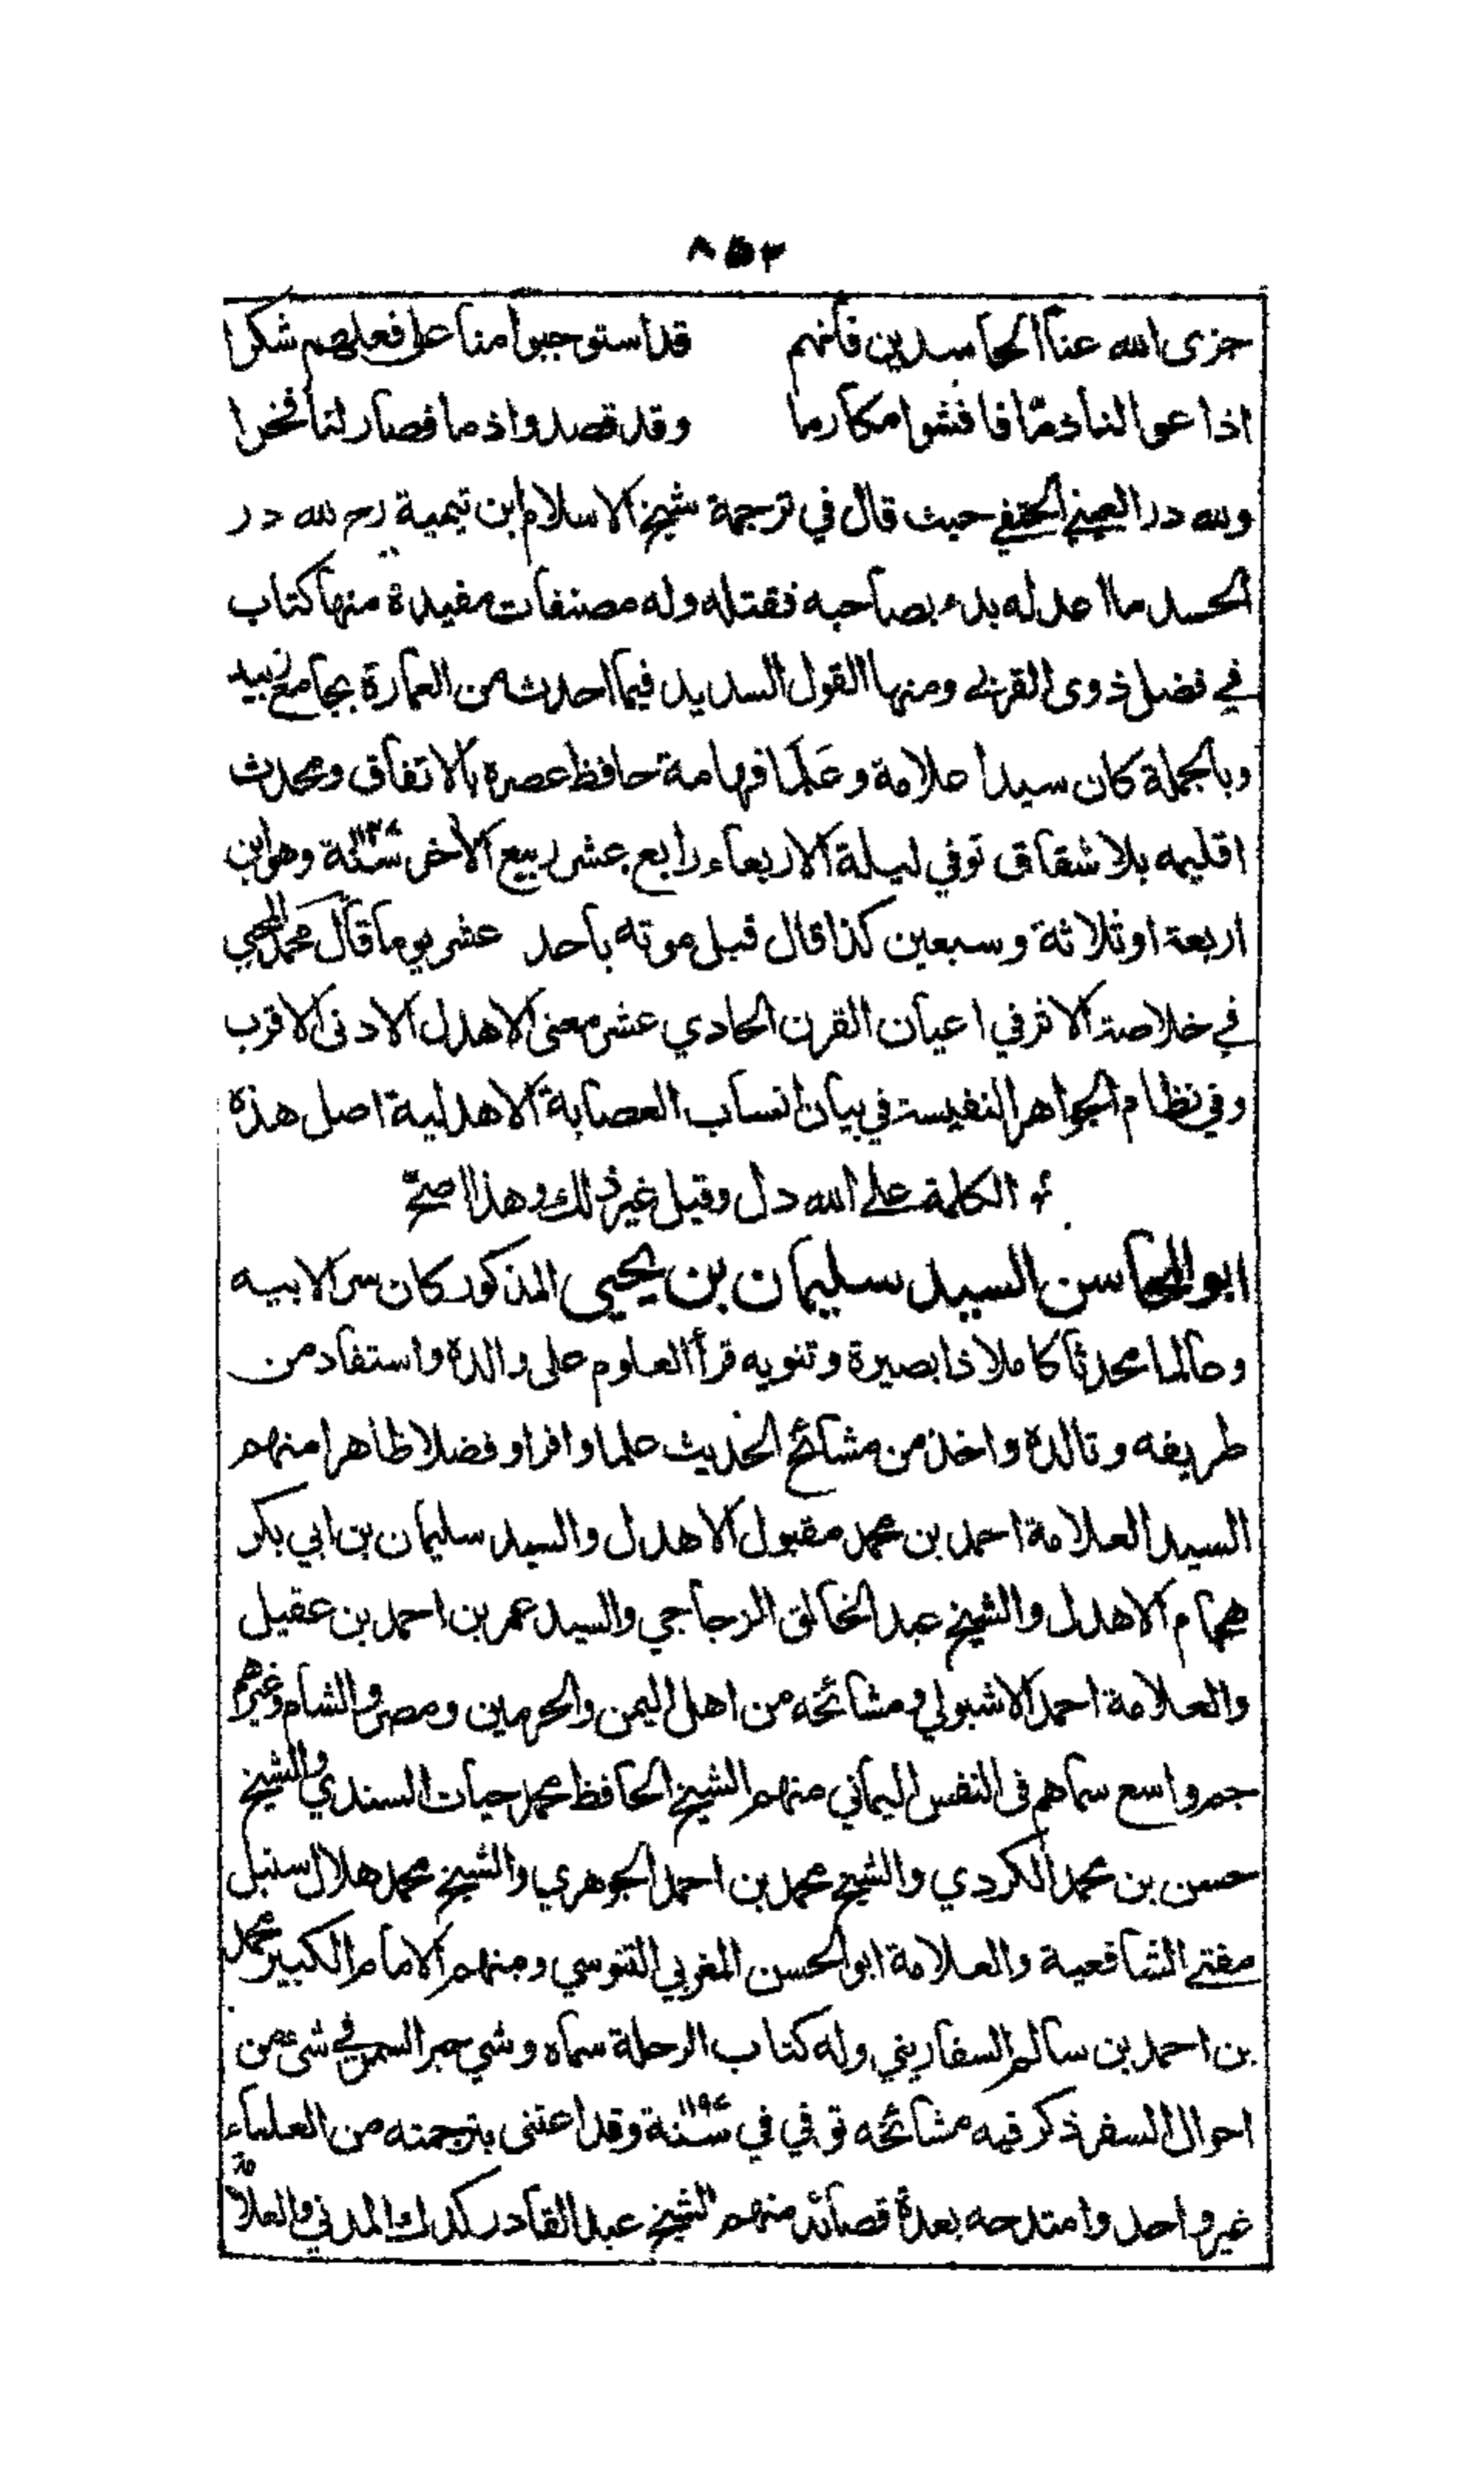 ٨٥٢
جزى الله عنا الحاسدين فانهم قد استوجبوا منا على فعلهم شكرا
اذاعوا لنا ذما فافشوا مكارما وقد قصدوا ذما فصار لنا فخرا
ولله در العيني الحنفي حيث قال في ترجمة شيخ الاسلام ابن تيمية رح لله در
الحسد ما اعدله بدء بصاحبه فقتله وله مصنفات مفيدة منها كتاب
في فضل ذوى القربى ومنها القول السديد فيما احدث من العمارة بجامع زبيد
وبالجملة كان سيدا علامة وعَلَما فهامة حافظ عصره بالاتفاق ومحدث
اقليمه بلا شقاق توفي ليلة الاربعاء رابع عشر ربيع الأخر سنة وهو ابن
اربعة او ثلاثة وسبعين كذا قال قبل موته باحد عشر يوما قال محمد المحبي
في خلاصة الاثر في اعيان القرن الحادي عشر معنى الاهدل الادنى الاقرب
وفي نظام الجواهر النفيسة في بيان انساب العصابة الاهدلية اصل هذه
الكلمة على الله دل وقيل غير ذلك وهذا اصح
ابو المحاسن السيد سليمان بن يحيى المذكور كان سر الابيه
وعالما محدثا كاملا ذا بصيرة وتنويه قرأ العلوم على والده واستفاد من
طريفه وتالده واخذ من مشائخ الحديث علما وافرا وفضلا ظاهرا منهم
السيد العلامة احمد بن محمد مقبول الاهدل والسيد سليمان بن ابي بكر
هجام الاهدل والشيخ عبد الخالق الزجاجي والسيد عمر بن احمد بن عقيل
والعلامة احمد الاشبولي ومشائخه من اهل اليمن والحرمين ومصر والشام وغيرهم
جم واسع سماهم فى النفس اليماني منهم الشيخ الحافظ محمد حيات السندي والشيخ
حسن بن محمد الكردي والشيخ محمد بن احمد الجوهري والشيخ محمد هلال سنبل
مفتي الشافعية والعلامة ابو الحسن المغربي التنوسي ومنهم الامام الكبير محمد
بن احمد بن سالم السفاريني وله كتاب الرحلة سماه وشي حبر السمر في شئ من
احوال السفر ذكر فيه مشائخه توفي في سنة وقد اعتنى بترجمته من العلماء
غير واحد وامتدحه بعدة قصائد منهم الشيخ عبد القادر كدك المدني والعلامة